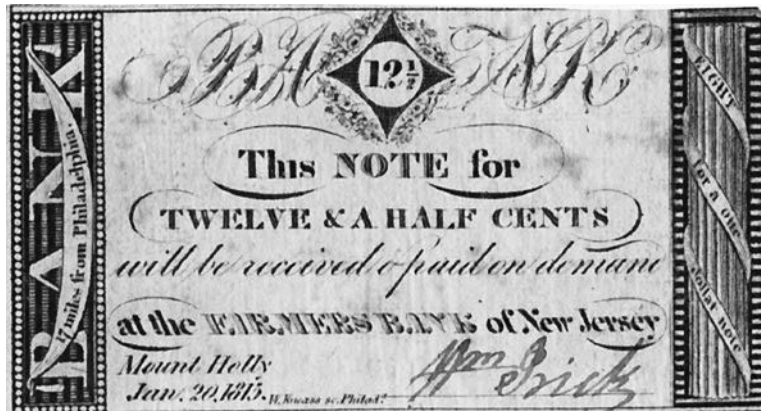 BANK
17 miles from Philadelphia
BA 12½ NK
This NOTE for
TWELVE & A HALF CENTS
will be received & paid on demand
at the FARMERS BANK of New Jersey
Mount Holly
Jan. 20, 1815.
W. Kneass sc. Philad?
Wm Irick
EIGHT
For a one
dollar note